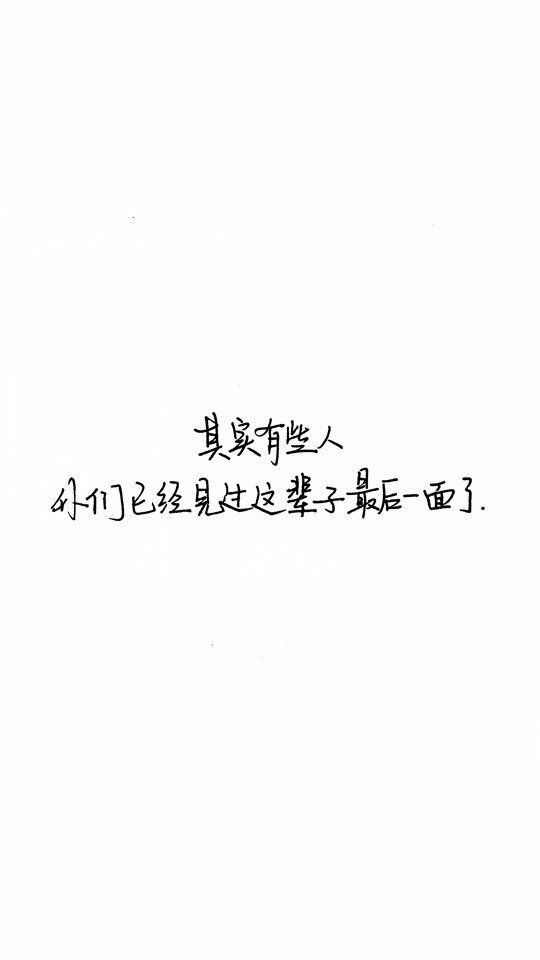 其实有些人
我们已经见过这辈子最后一面了.